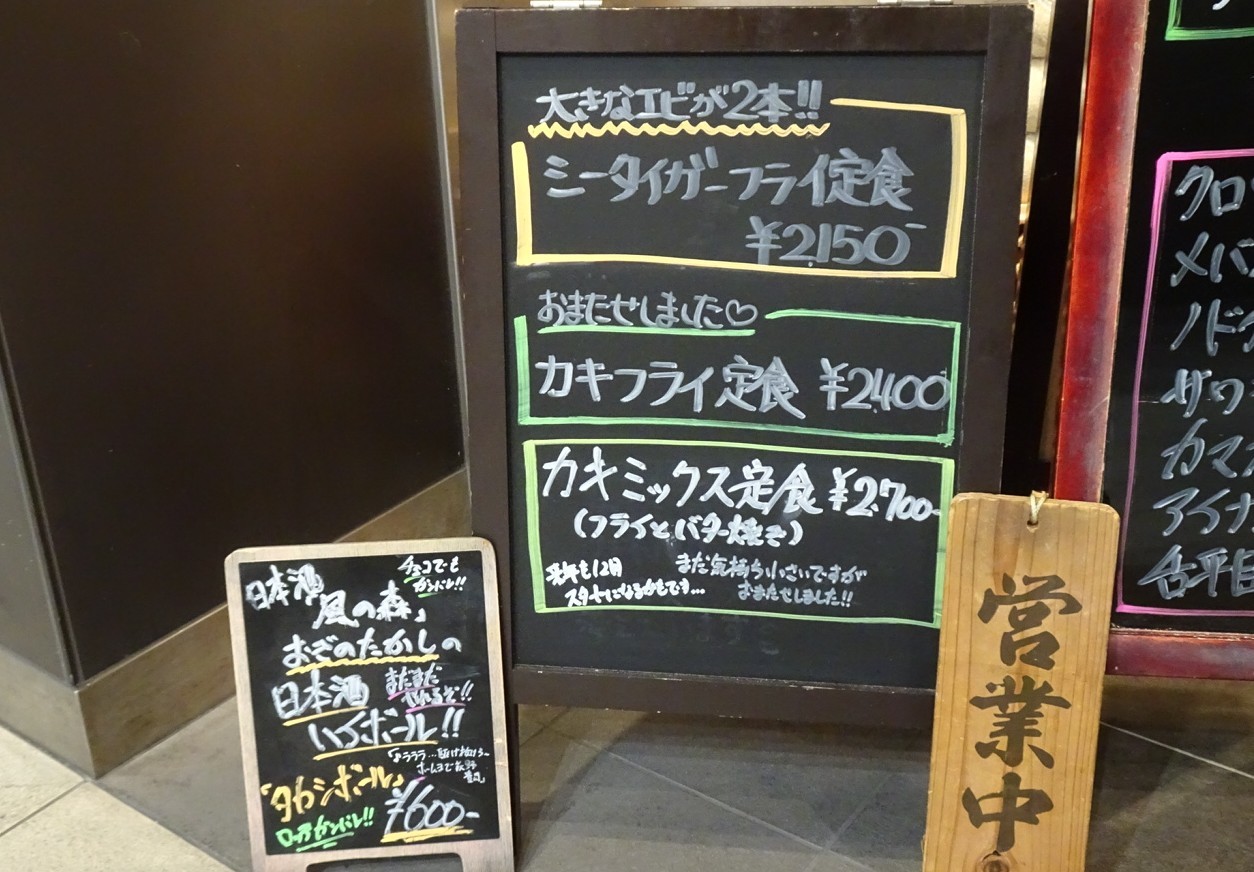 大きなエビが2本!!
シータイガーフライ定食
¥2,150-
おまたせしました♡
カキフライ定食 ¥2,400
カキミックス定食 ¥2,700-
(フライとバター焼き)
まだ気持ち小さいですが
おまたせしました!!
スタートになるかもです…
日本酒
風の森」
おぎのたかしの
日本酒
まだまだ
ハイボール!!
「タカシボール」
¥600-
ロッテガンバレ!!
チョコでも
ガンバレ!!
営業中
クロ
メバ
ノド
サワ
カマ
アイナ
舌平目